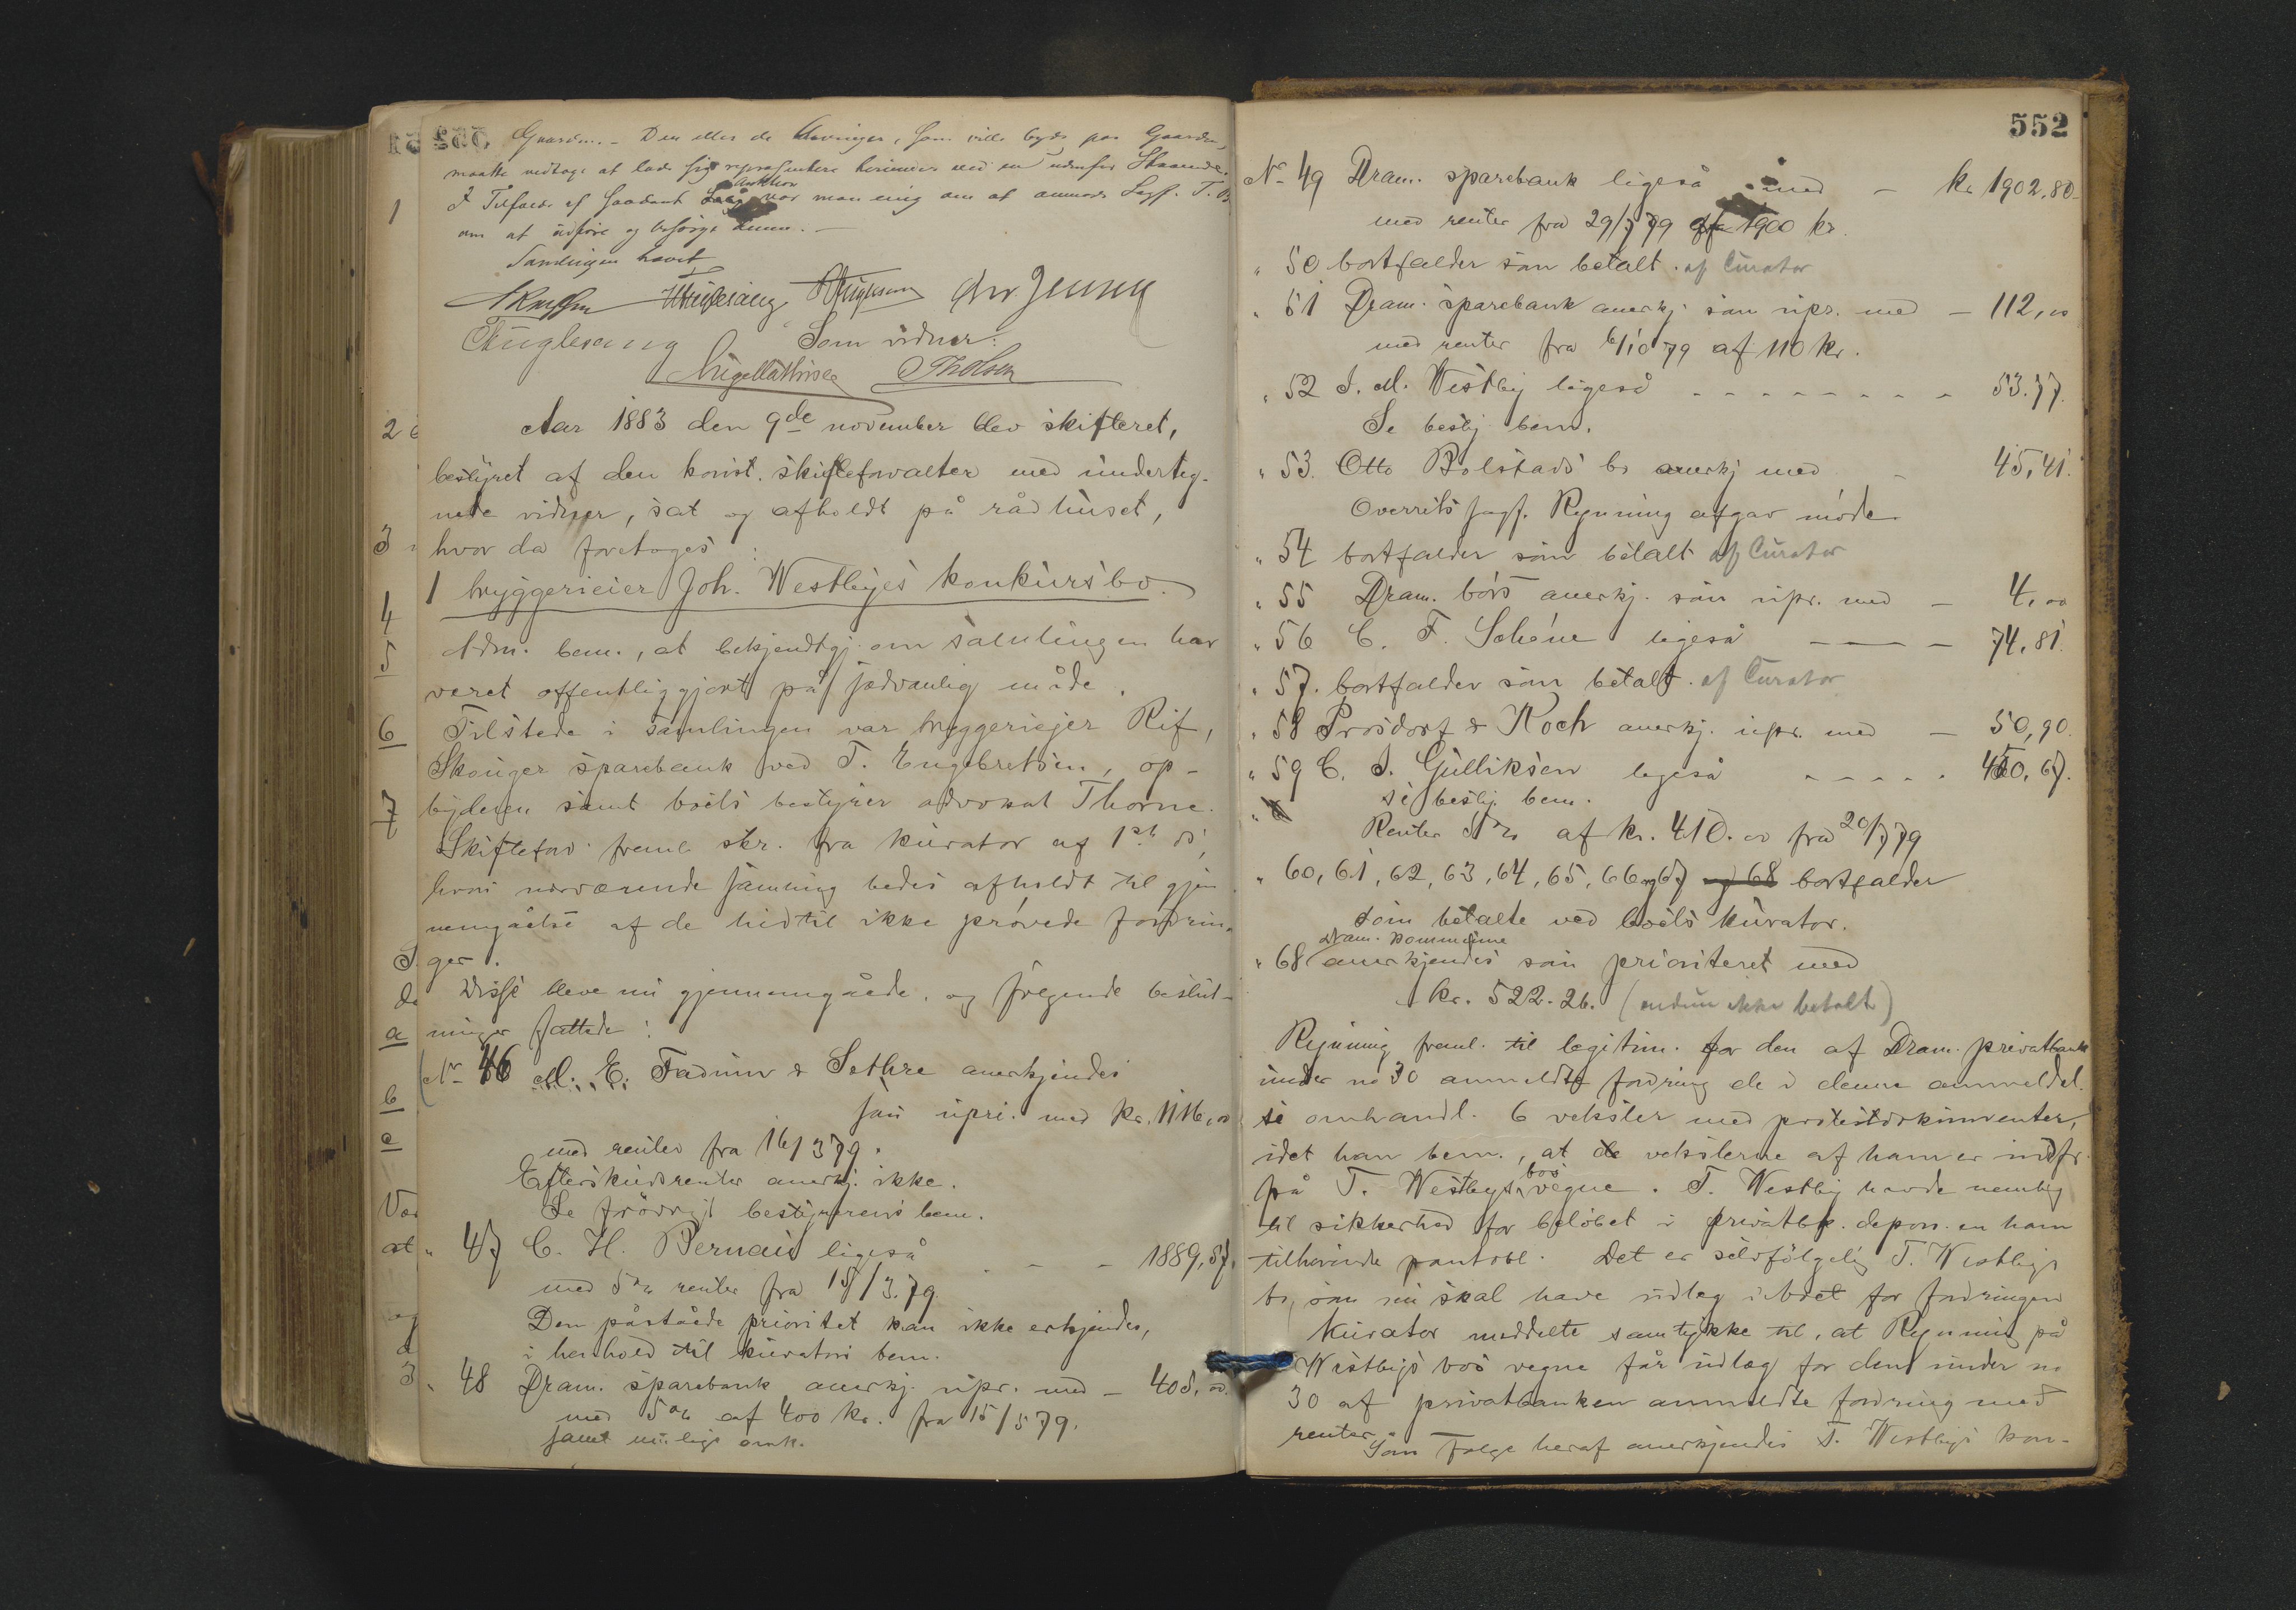 Gaarden. - Den eller de Arvinger, som ville byde paa Gaarden,
maatte vedtage at lade sig repræsentere herunder ved en udenfor Staaende.
I Tilfælde af saadant Auktion var man enig om at anmode Sagf. T.
om at udføre og besørge denne. -
Samlingen hævet
Chr. Jensen
Fuglesang Som vidner:
Tholsen
Aar 1883 den 9de november blev skifteret,
bestyret af den konst. skifteforvalter med underteg-
nede vidner, sat og afholdt på rådhuset,
hvor da foretoges:
1 bryggerieier Joh. Westbyes konkursbo.
Adm. bem., at bekjendtgj. om samlingen har
været offentliggjort på sædvanlig måde.
Tilstede i samlingen var bryggeriejer Rif,
Skouger sparebank ved T. Engebretsen, op-
byderen samt boets bestyrer advokat Thorne.
Skifteforv. freml. skr. fra kurator af 1ste ds,
hvori nærværende samling bedes afholdt til gjen
nemgåelse af de hidtil ikke prøvede fordrin
ger.
Disse bleve nu gjennemgåede, og følgende beslut-
ninger fattede:
No 46 M. E. Fadum & Sethre anerkjendes
som upri. med kr. 1116,00
med renter fra 16/3 79.
Efterskudsrenter anerkj. ikke.
Se forøvrigt bestyrerens bem.
" 47 C. H. Bernais ligeså - - 1889,57.
med 5% renter fra 15/3.79
Den påståede prioritet kan ikke erkjendes,
i henhold til kurators bem.
" 48 Dram. sparebank anerkj. upr. med - 405,00.
med 5% af 400 kr. fra 15/5 79.
samt mulige omk.
552
No 49 Dram. sparebank ligeså med - kr 1902,80
med renter fra 29/7 79 af 1900 kr.
" 50 bortfalder som betalt. af Curator
" 51 Dram. sparebank anerkj. som upr. med - 112,00
med renter fra 6/10 79 af 110 kr.
" 52 J. M. Westby ligeså - - - - - - - - 53.77.
Se besty. bem.
" 53. Otto Bolstads bo anerkj med - 45,41.
Overrets sagf. Rynning afgav møde
" 54 bortfalder som betalt af Curator
" 55 Dram. børs anerkj. som upr. med - 4,00
" 56 C. F. Schéne ligeså - - - 74,81.
" 57. bortfalder som betalt. af Curator
" 58 Prosdorf & Koch anerkj. upr. med - 50,90.
" 59 C. J. Gulliksen ligeså - - - - - 450,67.
se besty. bem.
Renter 5% af kr. 410.00 fra 20/7 79
" 60, 61, 62, 63, 64, 65, 66 og 67 og 68 bortfalder
som betalte ved boets kurator.
Dram. kommune
" 68 anerkjendes som prioriteret med
kr. 522.26. (endnu ikke betalt)
Rynning freml. til legitim. for den af Dram. privatbank
under no 30 anmeldte fordring de i denne anmeldel.
se omhandl. 6 veksler med protestdokumenter,
idet han bem., at de vekslerne af ham er indfr.
på T. Westbys bos vegne. T. Westby havde nemlig
til sikkerhed for beløbet i privatbk. depon. en ham
tilhørende pantobl. Det er selvfølgelig T. Westbys
bo, som nu skal have udlæg i boet for fordringen
Kurator meddelte samtykke til, at Rynning på
Westbys bos vegne får udlæg for den under no
30 af privatbanken anmeldte fordring med
renter.
Som følge heraf anerkjendes T. Westbys kon-